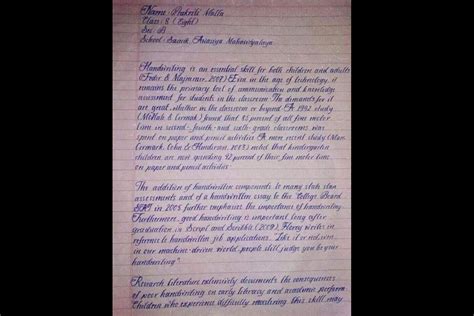 Name : Prakriti Malla
Class : 8 (Eight)
Sec : B
School : Sainik Awasiya Mahavidyalaya
Handwriting is an essential skill for both children and adults
(Feder & Majnemer, 2007). Even in the age of technology, it
remains the primary tool of communication and knowledge
assessment for students in the classroom. The demands for it
are great, whether in the classroom or beyond. A 1992 study
(McHale & Cermak) found that 85 percent of all fine motor
time in second- fourth- and sixth-grade classrooms was
spent on paper and pencil activities. A more recent study (Marr,
Cermark, Cohn & Henderson, 2003) noted that kindergarten
children are now spending 42 percent of their fine motor time
on paper and pencil activities.
The addition of handwritten components to many state stan
assessments and of a handwritten essay to the College Board
SAT in 2005 further emphasis the importance of handwriting.
Furthermore, good handwriting is important long after
graduation. In Script and Scribble (2009), Florey writes in
reference to handwritten job applications. "Like it or not, even
in our machine-driven world, people still judge you by your
handwriting".
Research literature extensively documents the consequences
of poor handwriting on early literacy and academic perform
Children who experience difficulty mastering this skill may